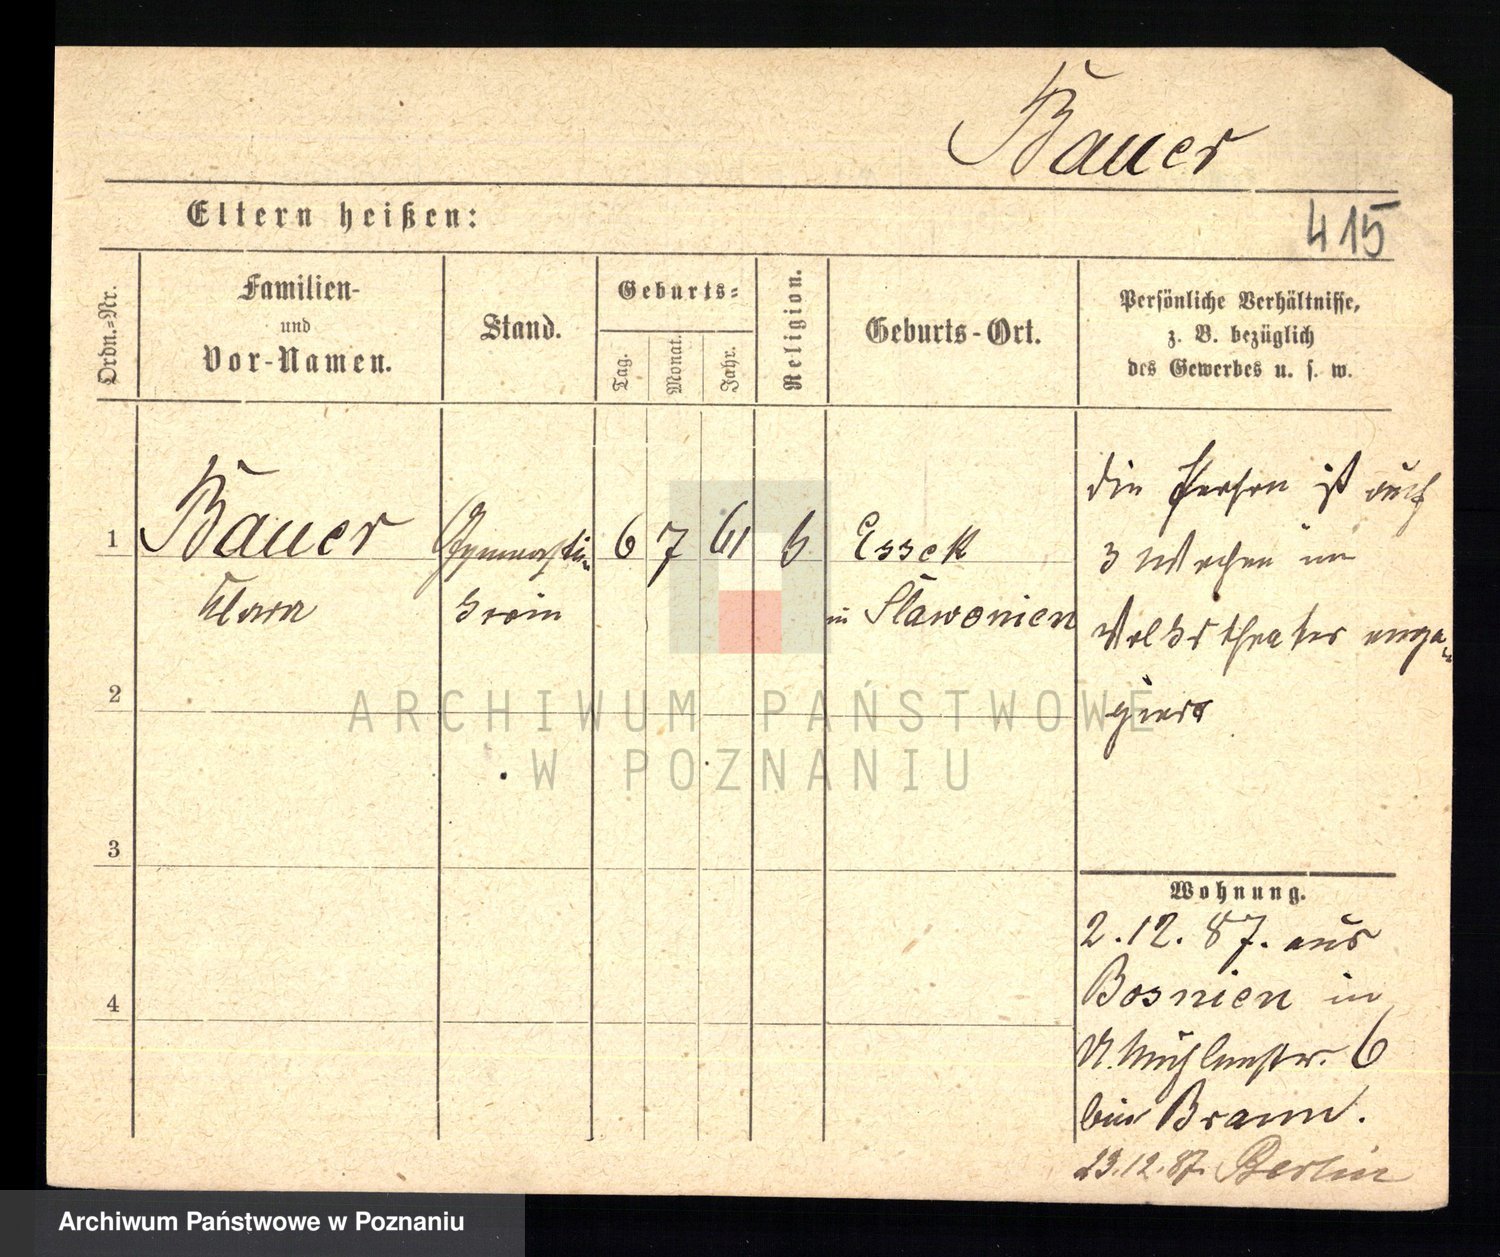 Bauer
415
Eltern heißen:
Ordn.=Nr.
Familien-
und
Vor-Namen.
Stand.
Geburts=
Tag.
Monat.
Jahr.
Religion.
Geburts-Ort.
Persönliche Verhältnisse,
z. B. bezüglich
des Gewerbes u. s. w.
1
Bauer
Klara
Gymnasti=
kerin
6 7 61
Essek
in Slawonien
die Person ist auf
3 Wochen im
Volkstheater enga=
giert
2
3
4
Wohnung.
2.12.87. aus
Bosnien in
Mühlenstr. 6
bei Braun.
23.12.87. Berlin
ARCHIWUM PAŃSTWOWE
W POZNANIU
Archiwum Państwowe w Poznaniu